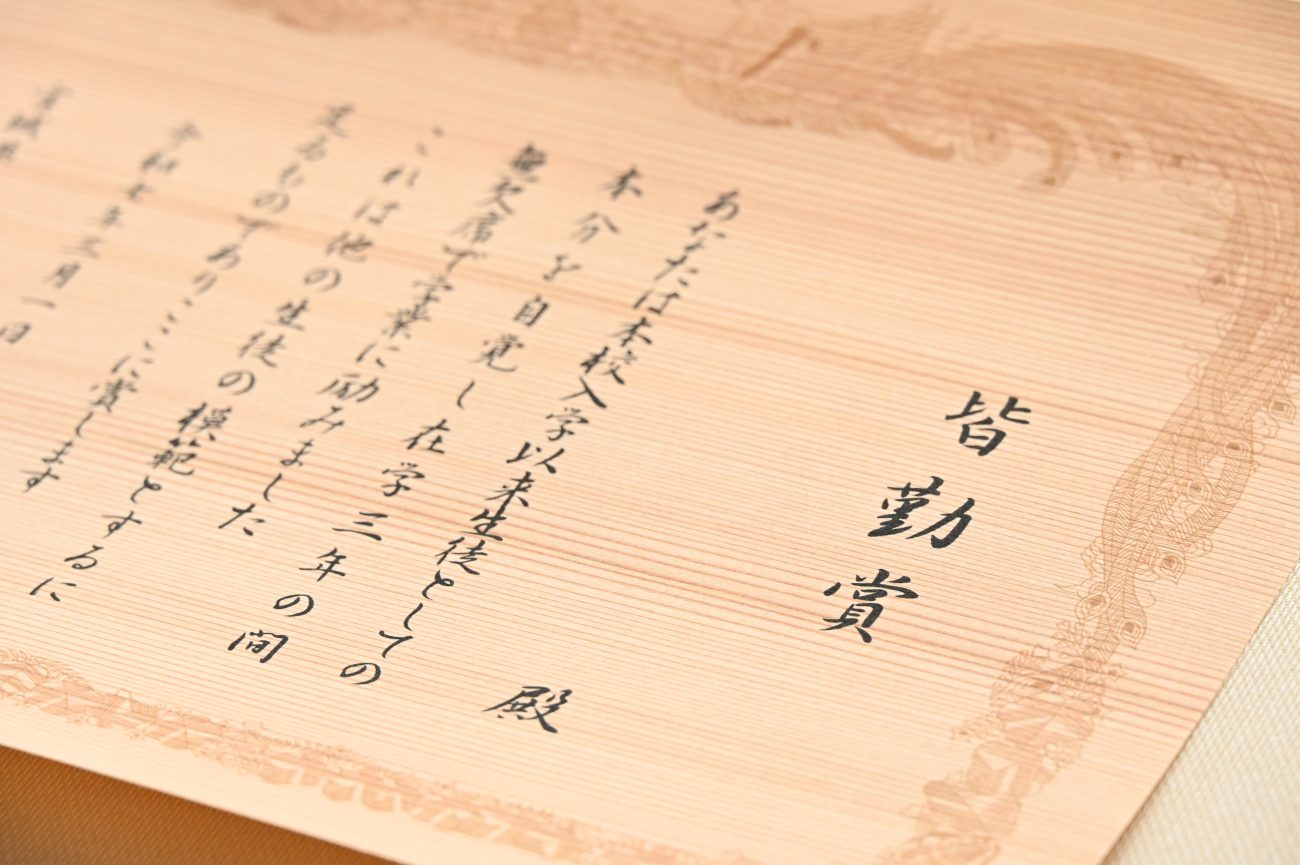 皆勤賞
殿
あなたは本校入学以来生徒としての
本分を自覚し在学三年の間
無欠席で学業に励みました
これは他の生徒の模範とするに
足るものでありここに賞します
令和七年三月一日
宮城県